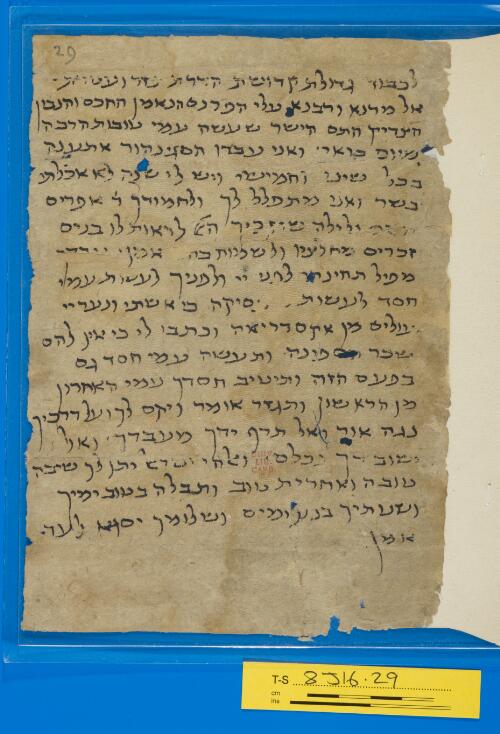 29
לכבוד גדולת קדושת הדרת
אל מרנא ורבנא עלי הפרנס הנאמן החכם והנבון
הצדיק התם הישר שעשה עמי טובות הרבה
מיום בואי ואני עבדו תענה
בכל שיני וחמישי ויש לי שנה לא אכלתי
בשר ואני מתפלל לך ולחמודך ר אפרים
ולילה לראות לו בנים
זכרים ולשלוחה אמן
מפיל תחינתי לפני ייי ולפניך לעשות עמי
חסד לעשות כי אשתי ונעריי
עולים מן אלקסדריאה וכתבו לי כי אין להם
שכר הספינה ותעשה עמי חסד גם
בפעם הזה ותיטיב חסדך עמי האחרון
מן הראשון ותגזר אומר ויקם לך ועל דרכיך
נגה אור ואל תרף ידך מעבדך ואל
ישוב דך נכלם יתן לך שיבה
טובה ואחרית טוב ותבלה בטוב ימיך
ושנותיך בנעימים ושלומך יסגא לעד
אמן
T-S 8J16.29
cm
ins